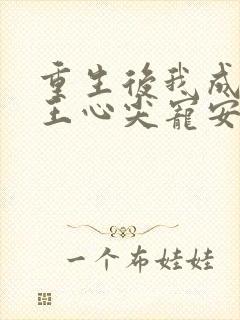 重生後我成
王心尖寵安
一个布娃娃